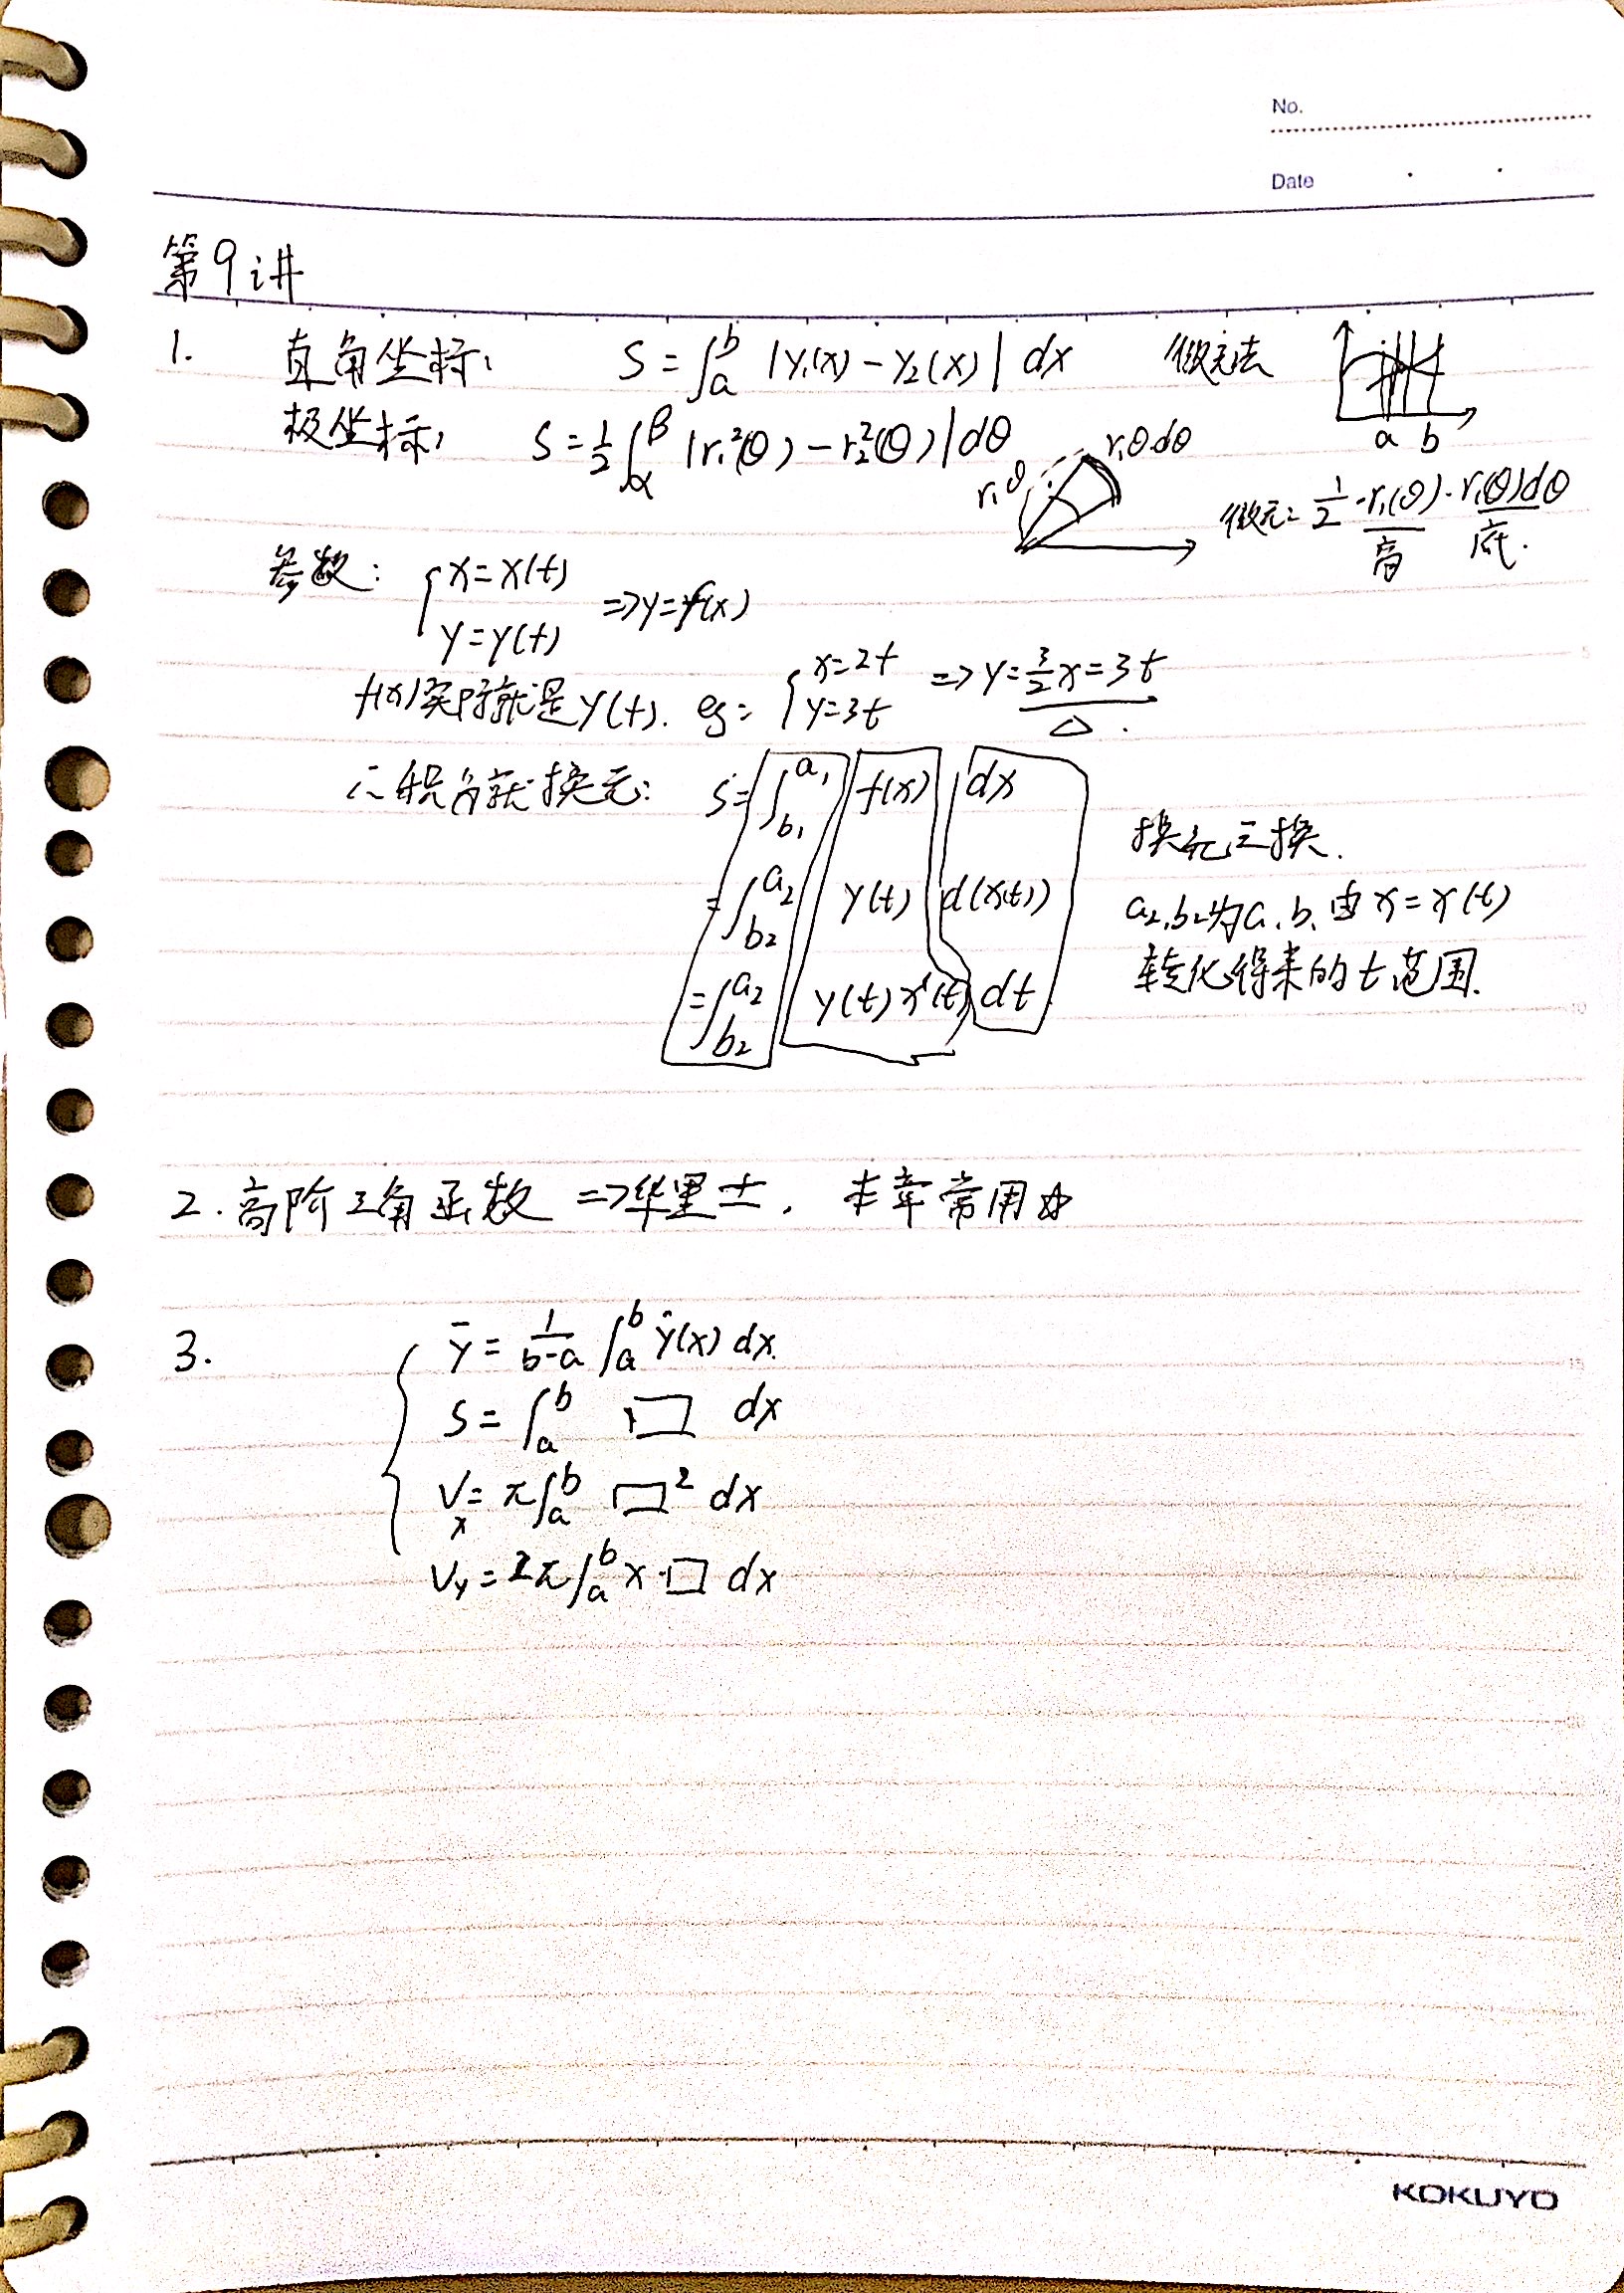 No.
Date
第9讲
1. 直角坐标: S = ∫_a^b |y₁(x) − y₂(x)| dx 微元法
a b
极坐标: S = ½ ∫_α^β |r₁²(θ) − r₂²(θ)| dθ
r₁θ r₁θ·dθ
微元: ½ · r₁(θ) · r₁(θ)dθ
高 底.
参数: { x = x(t) y = y(t) ⇒ y = f(x)
f(x)实际就是y(t). eg: { x = 2t y = 3t ⇒ y = 3/2 x = 3t
△.
∴积分就换元: S = ∫_{b₁}^{a₁} f(x) dx
换元三换.
= ∫_{b₂}^{a₂} y(t) d(x(t))
a₂,b₂为a₁b₁由 x = x(t)
转化得来的t范围.
= ∫_{b₂}^{a₂} y(t) x'(t) dt
2. 高阶三角函数 ⇒ 华里士. 本章常用☆
3. ȳ = 1/(b−a) ∫_a^b y(x) dx.
S = ∫_a^b □ dx
V_x = π ∫_a^b □² dx
V_y = 2π ∫_a^b x·□ dx
KOKUYO